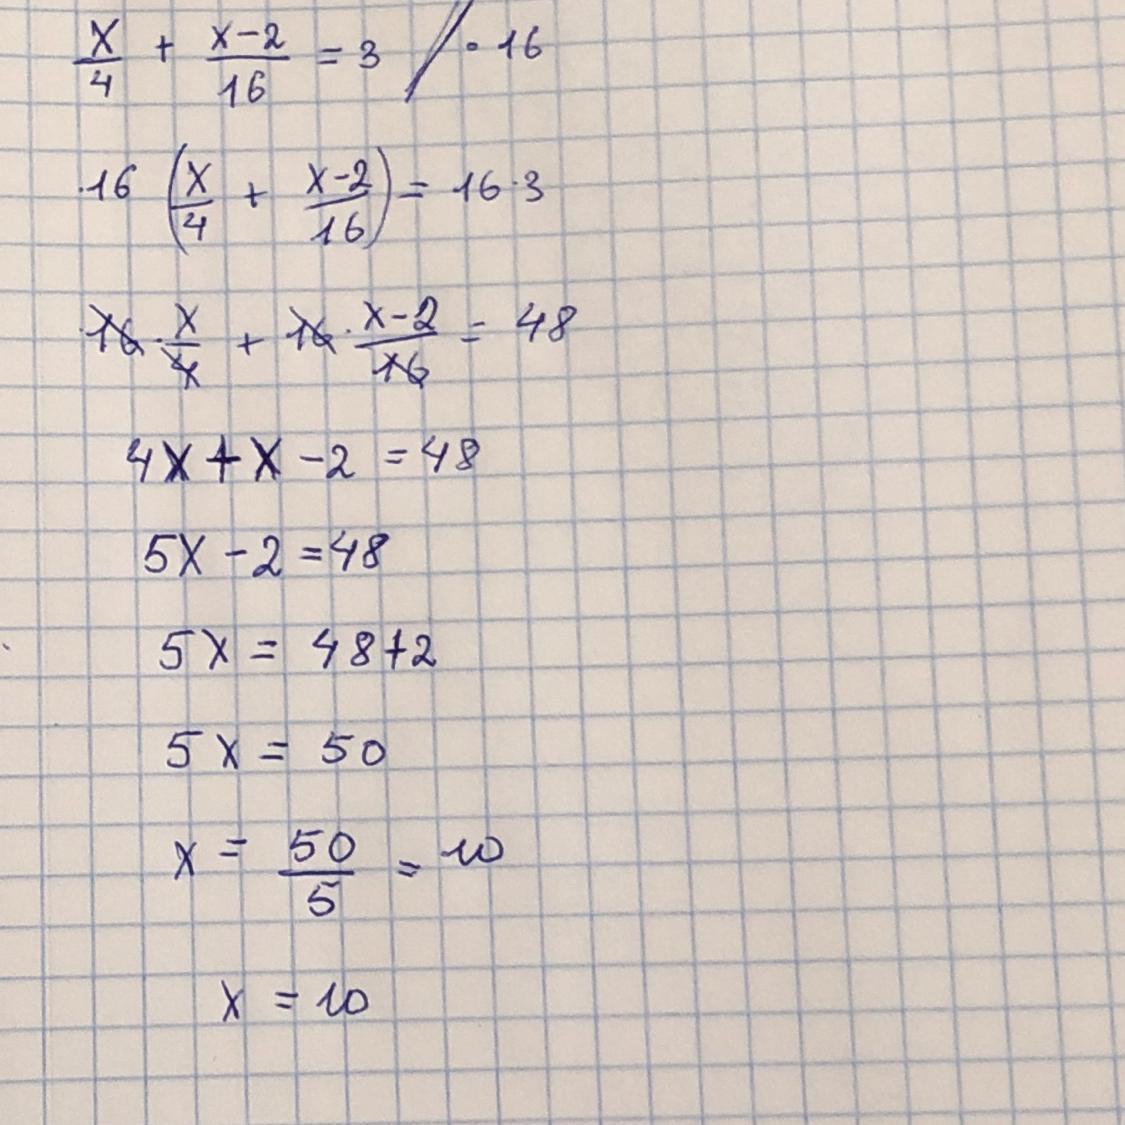 x/4 + (x-2)/16 = 3 / · 16
·16 (x/4 + (x-2)/16) = 16·3
·16 · x/4 + 16 · (x-2)/16 = 48
4x + x - 2 = 48
5x - 2 = 48
5x = 48+2
5x = 50
x = 50/5 = 10
x = 10